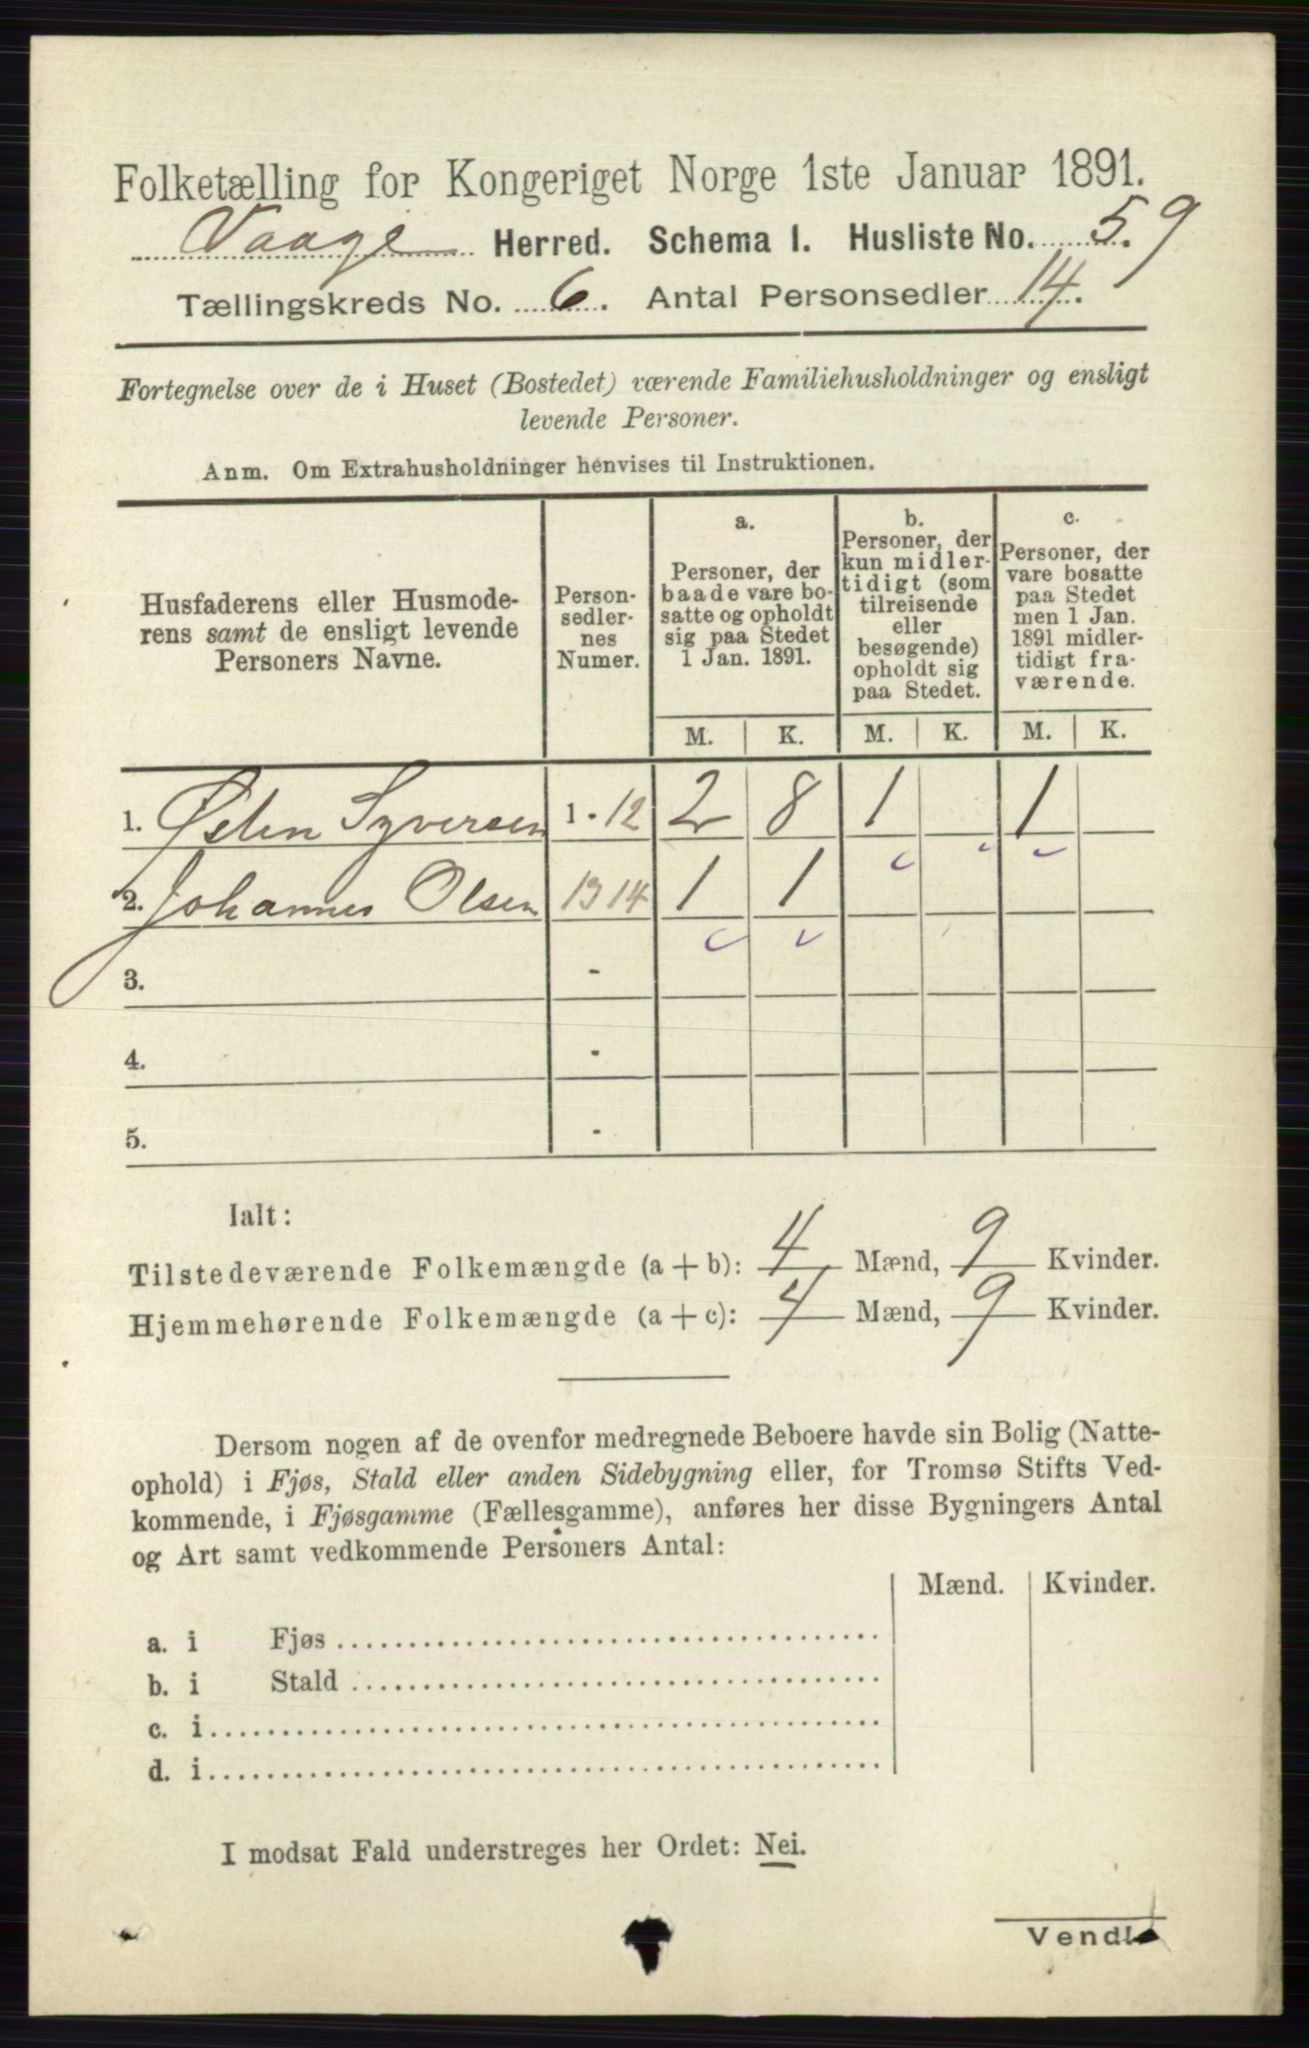 Folketælling for Kongeriget Norge 1ste Januar 1891.
Vaage Herred. Schema I. Husliste No. 59
Tællingskreds No. 6. Antal Personsedler 14.
Fortegnelse over de i Huset (Bostedet) værende Familiehusholdninger og ensligt
levende Personer.
Anm. Om Extrahusholdninger henvises til Instruktionen.
Husfaderens eller Husmode-
rens samt de ensligt levende
Personers Navne.
Person-
sedler-
nes
Numer.
a.
Personer, der
baade vare bo-
satte og opholdt
sig paa Stedet
1 Jan. 1891.
b.
Personer, der
kun midler-
tidigt (som
tilreisende
eller
besøgende)
opholdt sig
paa Stedet.
c.
Personer, der
vare bosatte
paa Stedet
men 1 Jan.
1891 midler-
tidigt fra-
værende.
M. K. M. K. M. K.
1. Østen Syversen 1 - 12 2 8 1 1
2. Johannes Olsen 13 14 1 1
3. -
4. -
5. -
Ialt:
Tilstedeværende Folkemængde (a + b): 4 Mænd, 9 Kvinder.
Hjemmehørende Folkemængde (a + c): 4 Mænd, 9 Kvinder.
Dersom nogen af de ovenfor medregnede Beboere havde sin Bolig (Natte-
ophold) i Fjøs, Stald eller anden Sidebygning eller, for Tromsø Stifts Ved-
kommende, i Fjøsgamme (Fællesgamme), anføres her disse Bygningers Antal
og Art samt vedkommende Personers Antal:
Mænd. Kvinder.
a. i Fjøs
b. i Stald
c. i
d. i
I modsat Fald understreges her Ordet: Nei.
Vend!